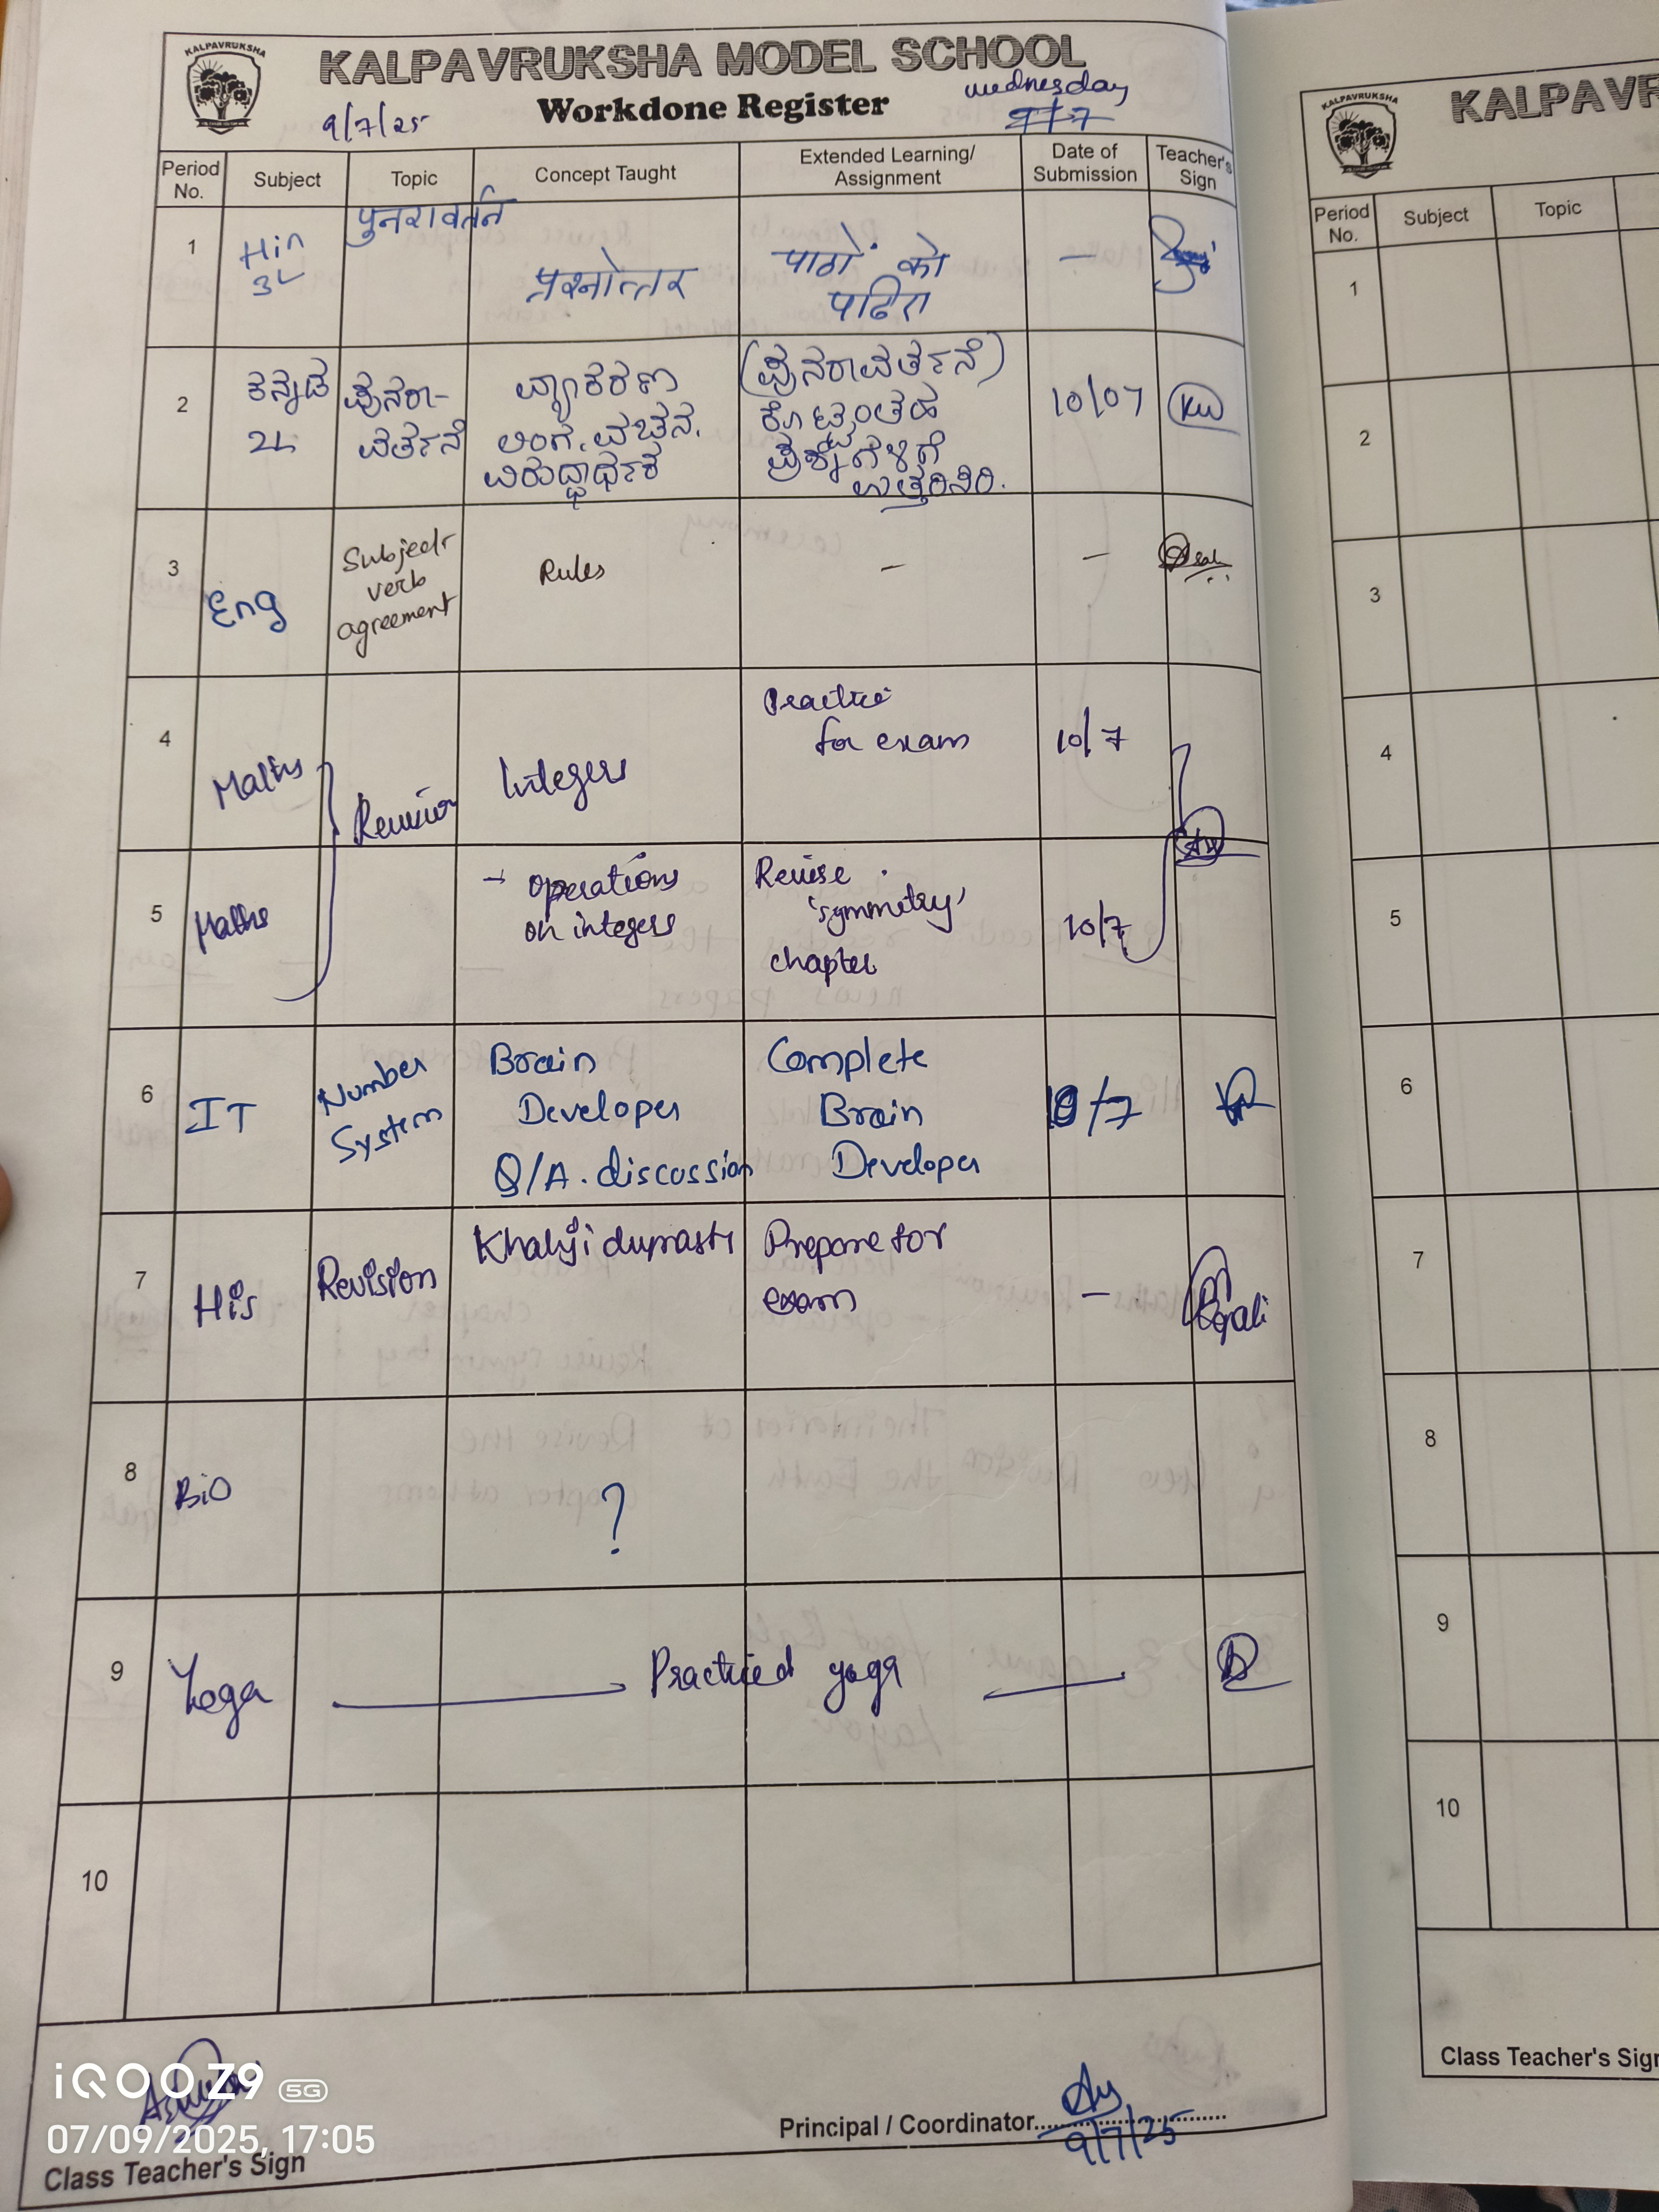 KALPAVRUKSHA
KALPAVRUKSHA MODEL SCHOOL
Workdone Register
wednesday
9/7/25
9/7
Period No.
Subject
Topic
Concept Taught
Extended Learning/ Assignment
Date of Submission
Teacher's Sign
1
Hin
3L
पुनरावर्तन
प्रश्नोत्तर
पाठों को
पढिए
—
2
ಕನ್ನಡ
2L
ಪುನರಾ-
ವರ್ತನೆ
ವ್ಯಾಕರಣ
ಲಿಂಗ, ವಚನ,
ವಿರುದ್ಧಾರ್ಥಕ
(ಪುನರಾವರ್ತನೆ)
ಕೊಟ್ಟಂತಹ
ಪ್ರಶ್ನೆಗಳಿಗೆ
ಉತ್ತರಿಸಿರಿ.
10/07
3
Eng
Subject
verb
agreement
Rules
—
—
4
Maths
Revision
Integers
Practice
for exam
10/7
5
Maths
→ operations
on integers
Revise
'symmetry'
chapter
10/7
6
IT
Number
System
Brain
Developer
Q/A. discussion
Complete
Brain
Developer
10/7
7
His
Revision
Khalji dynasty
Prepare for
exam
—
8
BiO
?
9
Yoga
Practiced yoga
10
Class Teacher's Sign
Principal / Coordinator
9/7/25
iQOO Z9 5G
07/09/2025, 17:05
KALPAVRUKSHA
KALPAVR
Period No.
Subject
Topic
1
2
3
4
5
6
7
8
9
10
Class Teacher's Sign